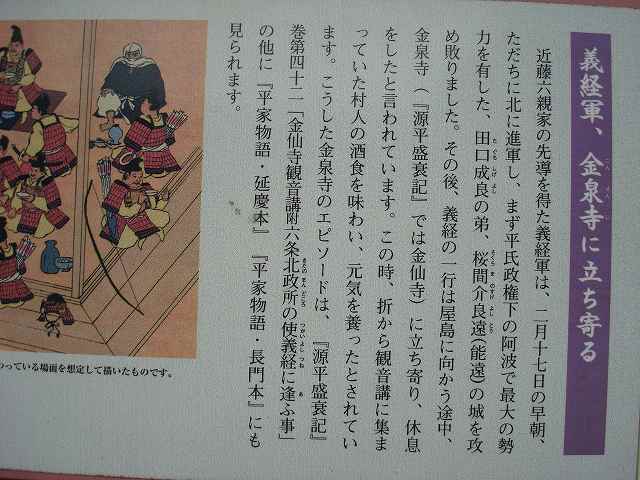 義経軍、金泉寺に立ち寄る
近藤六親家の先導を得た義経軍は、二月十七日の早朝、
ただちに北に進軍し、まず平氏政権下の阿波で最大の勢
力を有した、田口成良の弟、桜間介良遠(能遠)の城を攻
め敗りました。その後、義経の一行は屋島に向かう途中、
金泉寺(『源平盛衰記』では金仙寺)に立ち寄り、休息
をしたと言われています。この時、折から観音講に集ま
っていた村人の酒食を味わい、元気を養ったとされてい
ます。こうした金泉寺のエピソードは、『源平盛衰記』
巻第四十二「金仙寺観音講附六条北政所の使義経に逢ふ事」
の他に『平家物語・延慶本』『平家物語・長門本』にも
見られます。
わっている場面を想定して描いたものです。